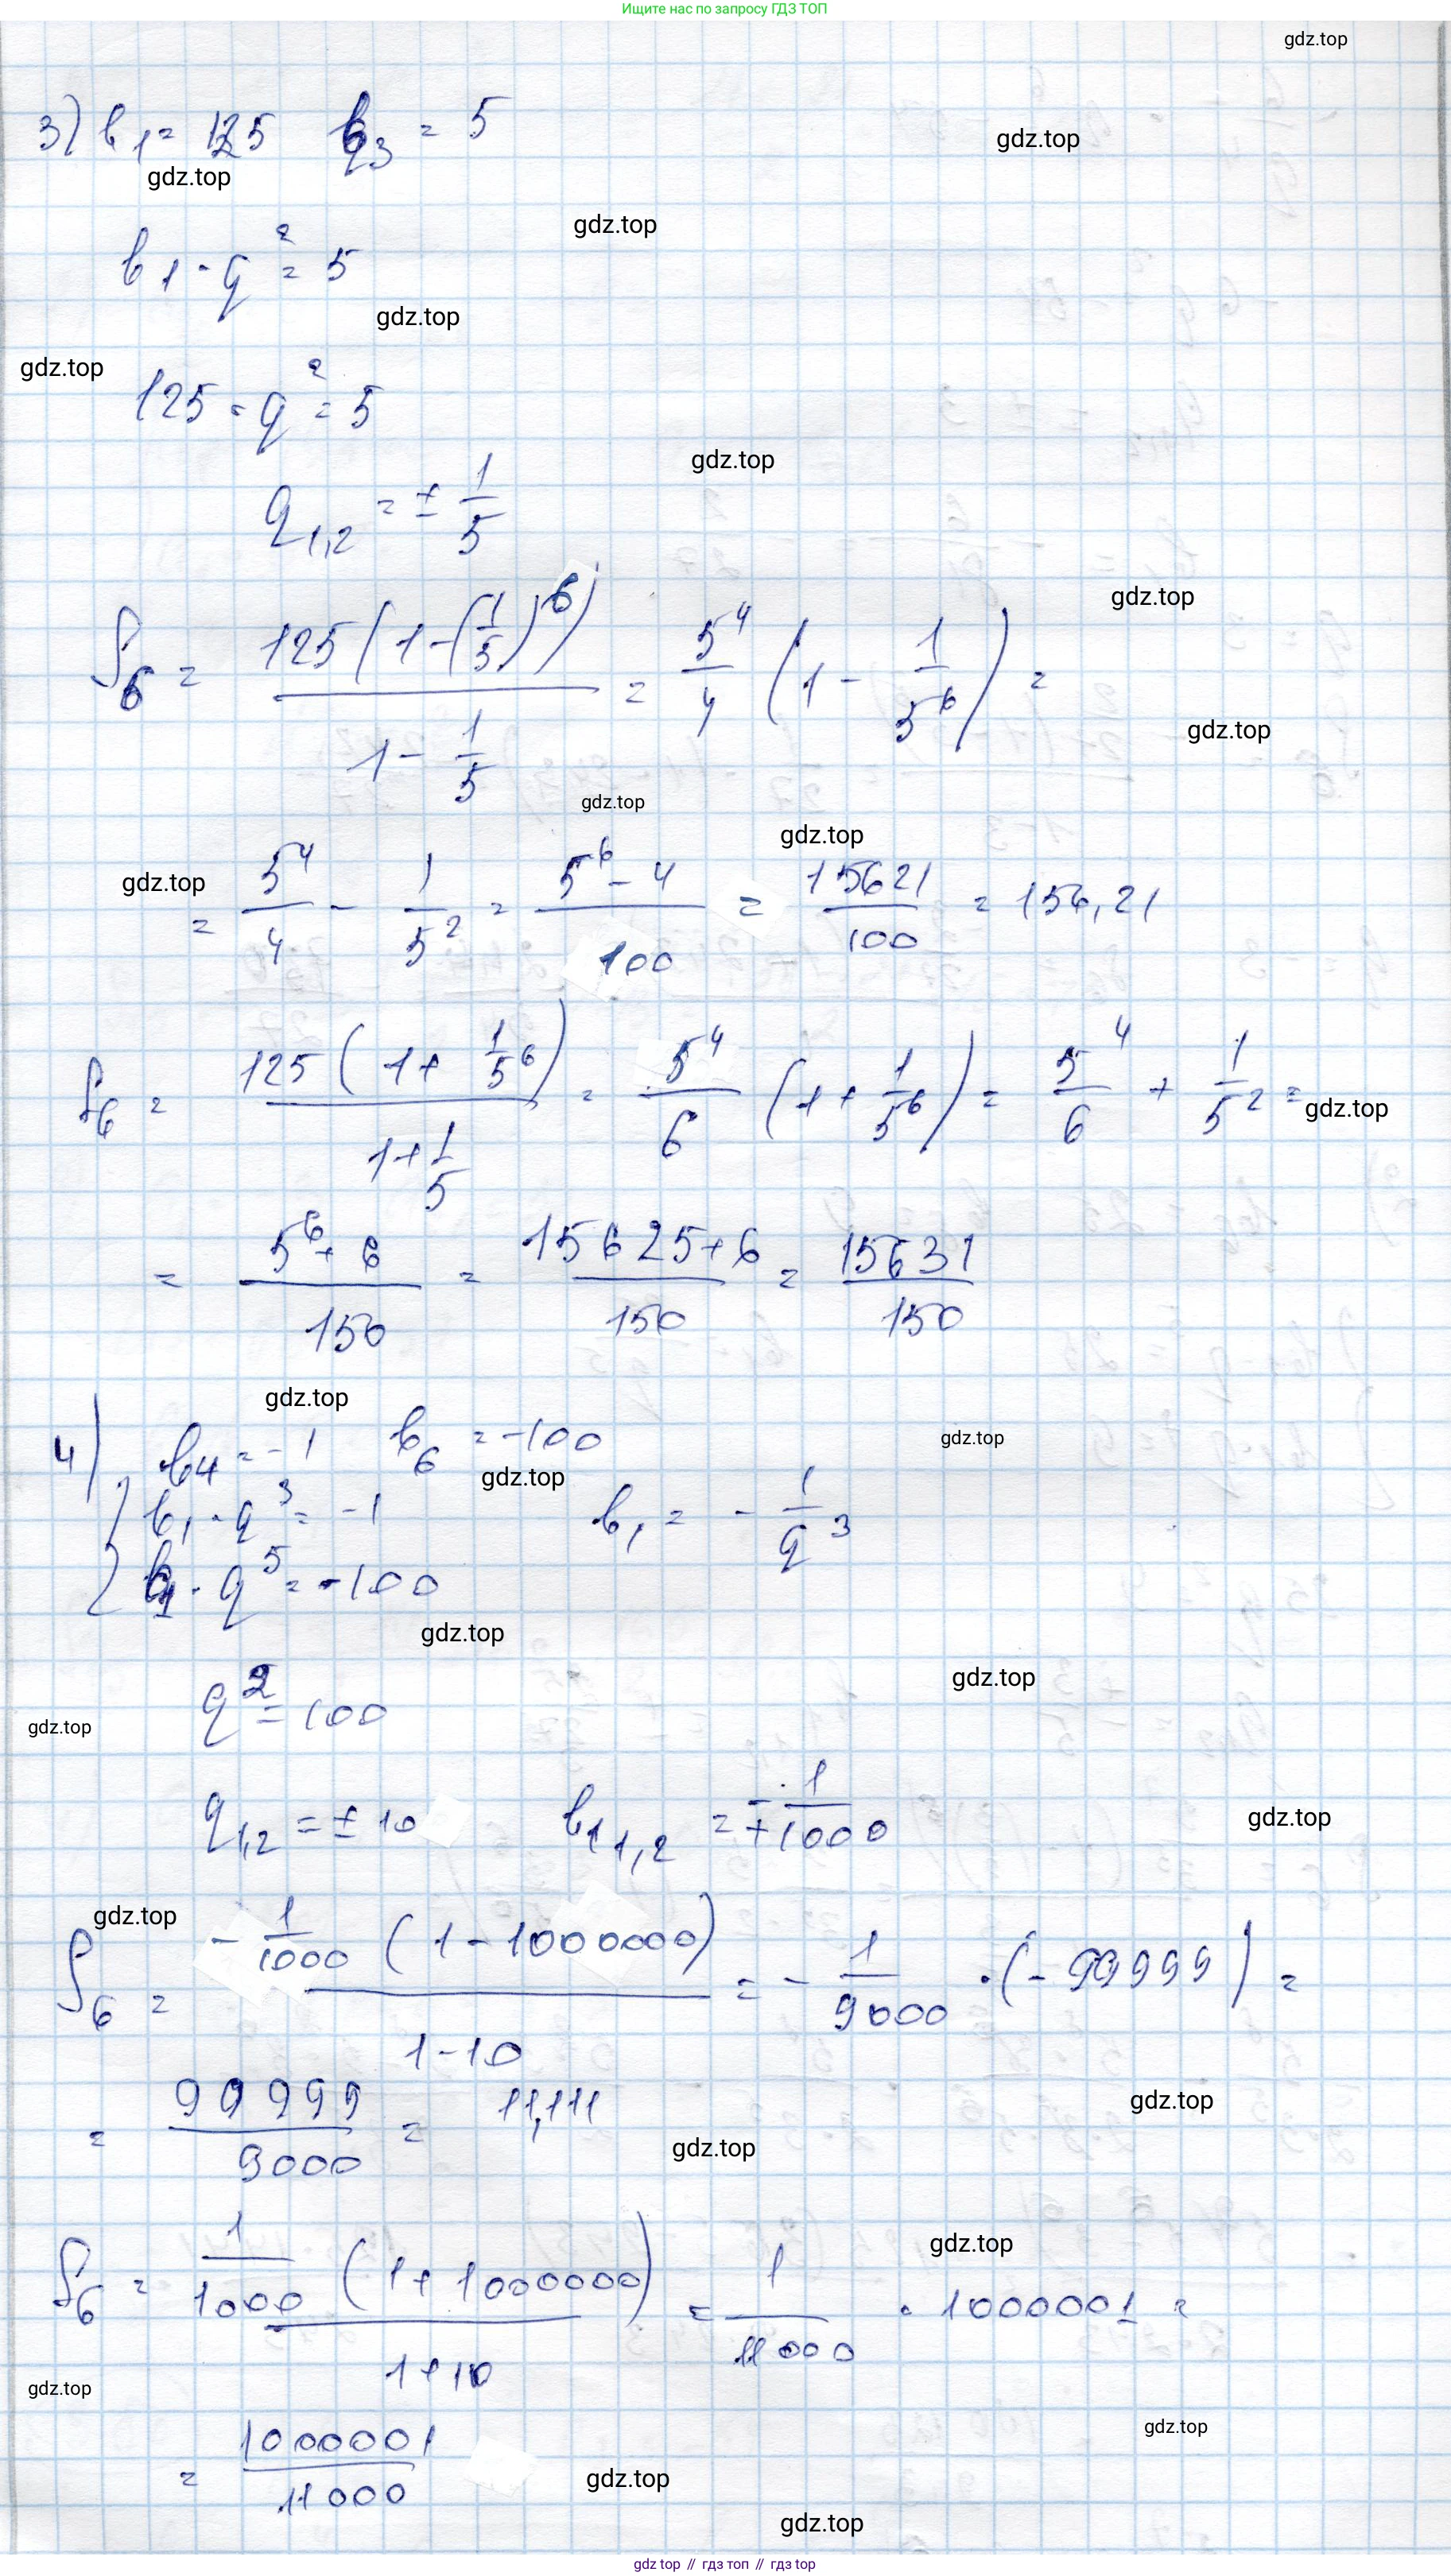 Ищите нас по запросу ГДЗ ТОП
gdz.top
3) b₁ = 125 b₃ = 5
gdz.top
gdz.top
b₁ · q² = 5
gdz.top
gdz.top
gdz.top
125 · q² = 5
q₁,₂ = ± 1/5
gdz.top
S₆ = 125(1 - (1/5)⁶) / (1 - 1/5) = 5⁴/4 (1 - 1/5⁶) =
gdz.top
gdz.top
gdz.top
gdz.top
gdz.top
= 5⁴/4 - 1/5² = (5⁶ - 4)/100 = 15621/100 = 156,21
S₆ = 125(1 + 1/5⁶) / (1 + 1/5) = 5⁴/6 (1 + 1/5⁶) = 5⁴/6 + 1/5² =
gdz.top
= (5⁶ + 6)/150 = (15625 + 6)/150 = 15631/150
gdz.top
4) b₄ = -1 b₆ = -100
gdz.top
gdz.top
{ b₁ · q³ = -1 b₁ = - 1/q³
b₁ · q⁵ = -100
gdz.top
gdz.top
q² = 100
gdz.top
q₁,₂ = ± 10 b₁ ₁,₂ = ∓ 1/1000
gdz.top
gdz.top
S₆ = - 1/1000 (1 - 1000000) / (1 - 10) = - 1/9000 · (- 99999) =
= 99999/9000 = 11,111
gdz.top
gdz.top
gdz.top
S₆ = 1/1000 (1 + 1000000) / (1 + 10) = 1/11000 · 1000001 =
gdz.top
gdz.top
= 1000001/11000
gdz.top
gdz.top
gdz.top // гдз топ // гдз top